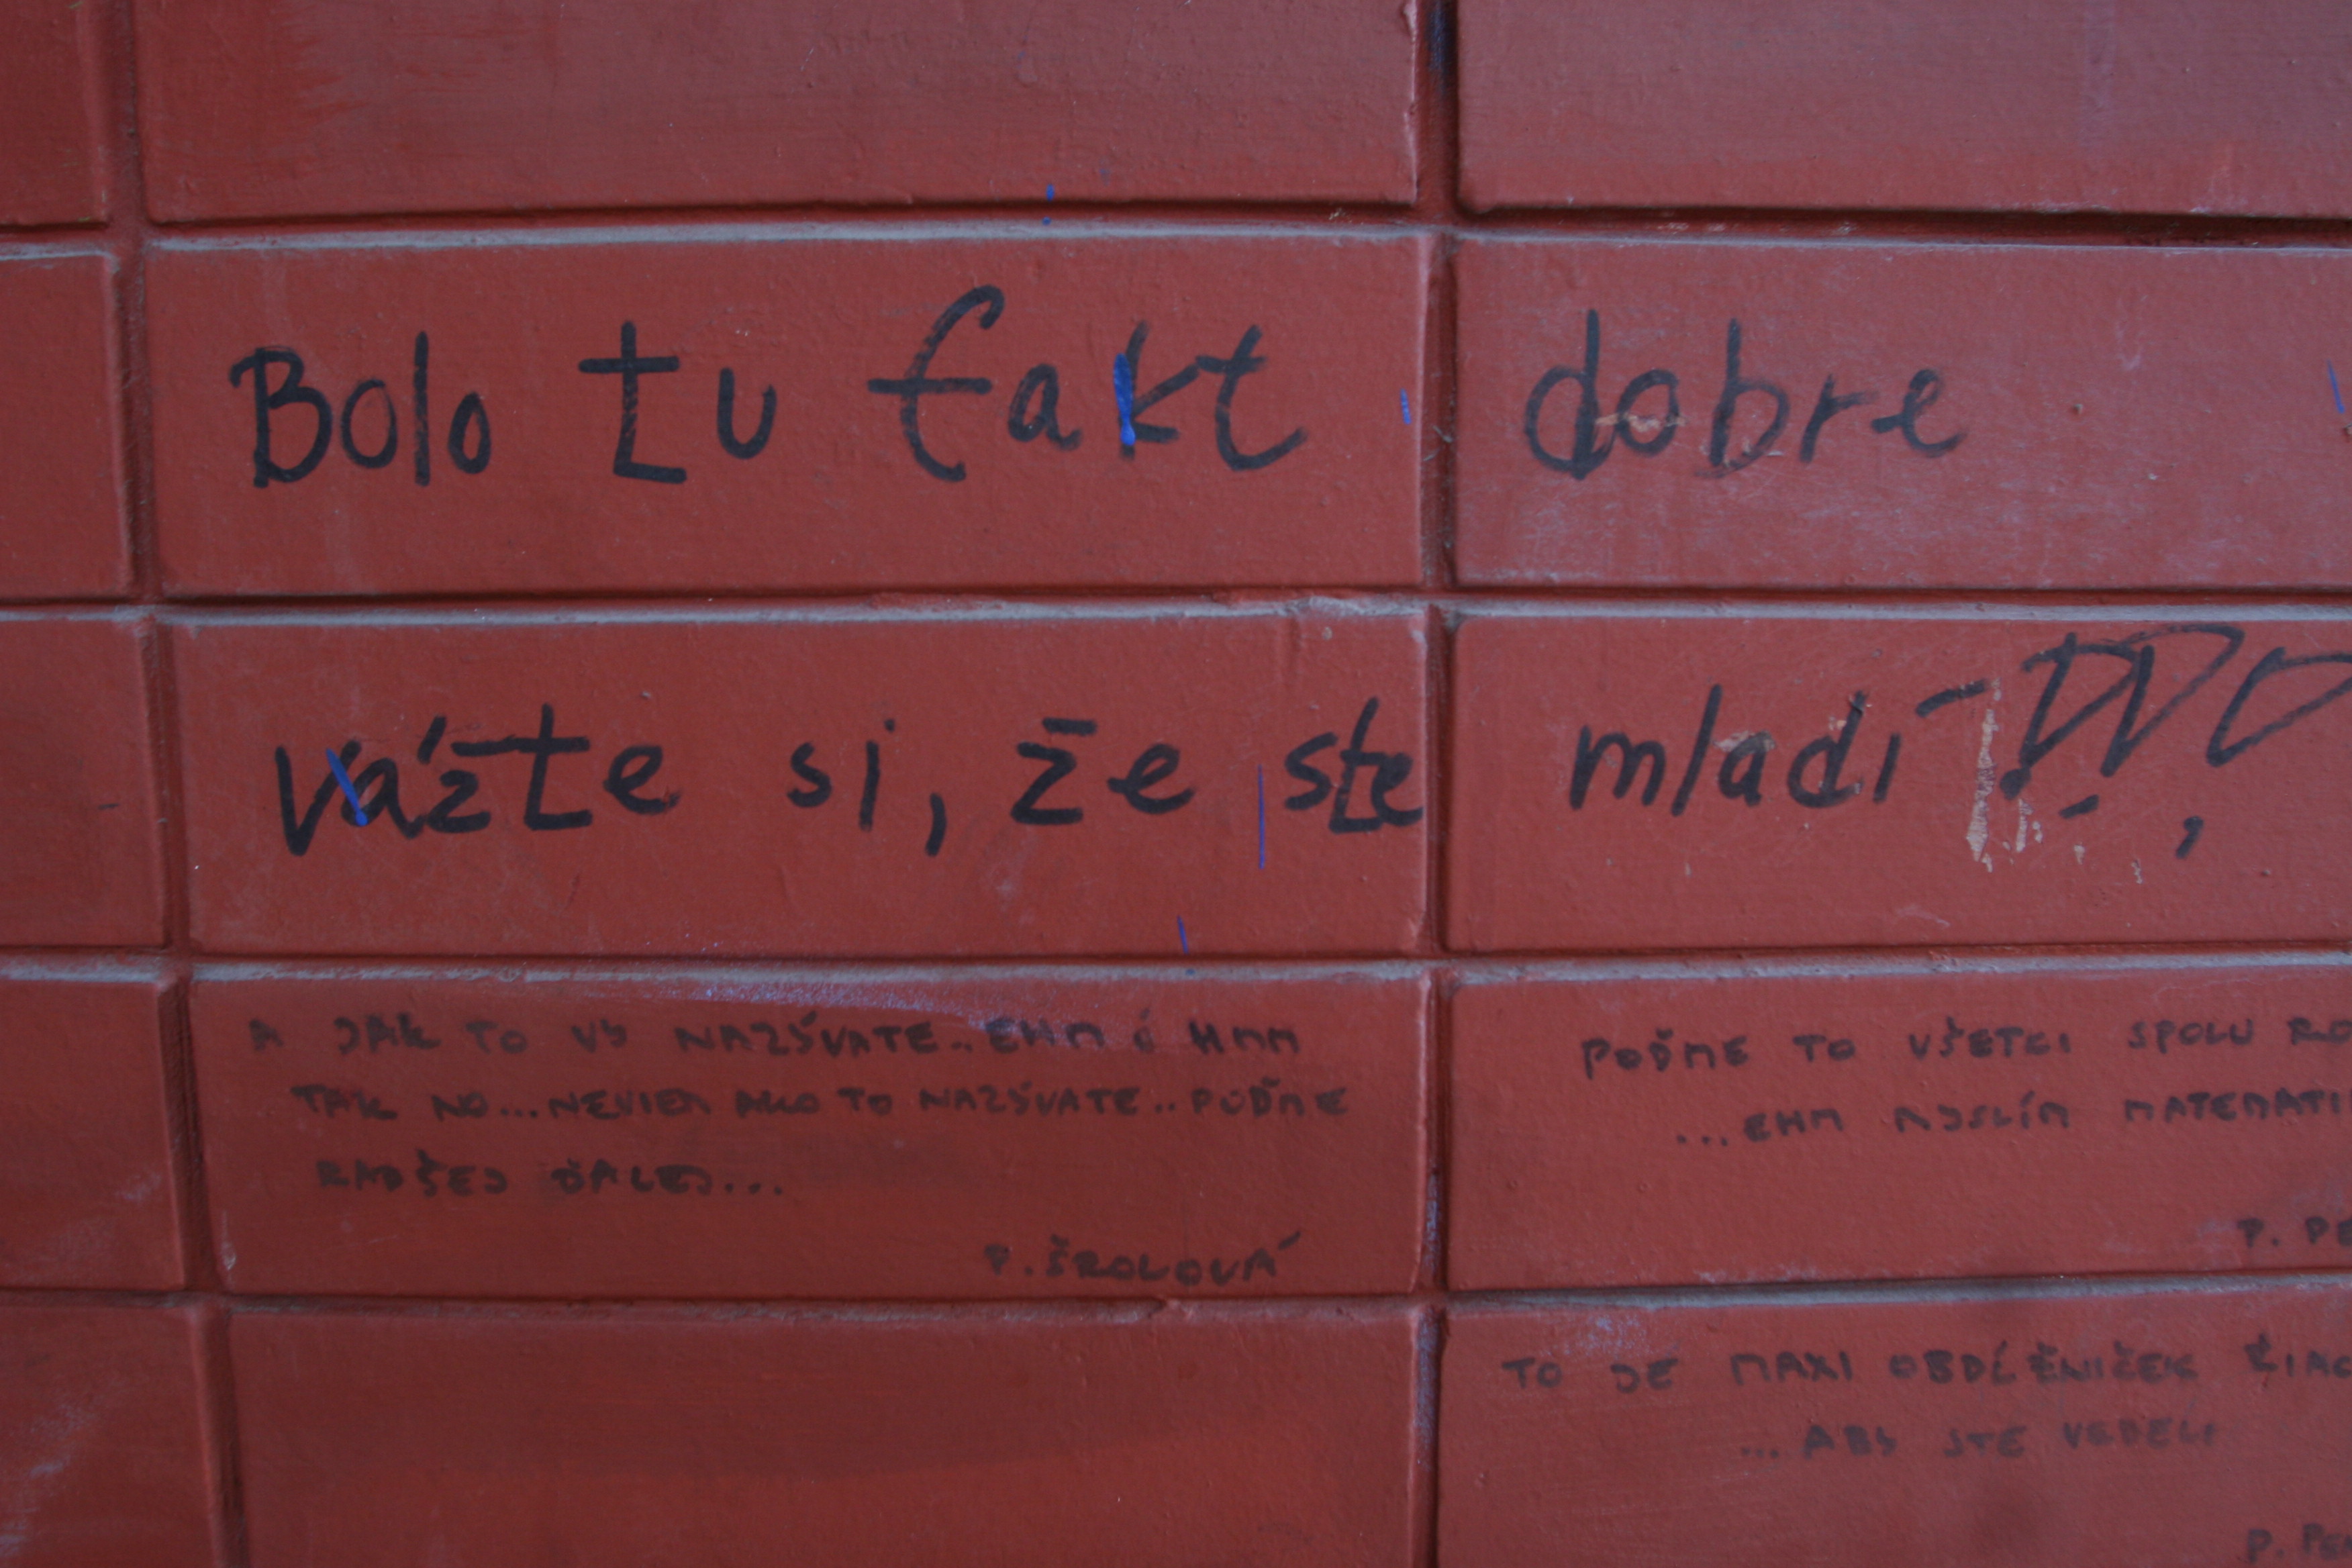 Bolo tu fakt dobre
vážte si, že ste mladí !!!
A JAK TO VY NAZÝVATE.. EHM Ó HMM
TAK NO...NEVIEM AKO TO NAZÝVATE..POĎME
RADŠEJ ĎALEJ...
P. ŠROLOVÁ
POĎME TO VŠETCI SPOLU
...EHM MYSLÍM
P.
TO JE MAXI OBDĹŽNIČEK
...ABY STE VEDELI
P.